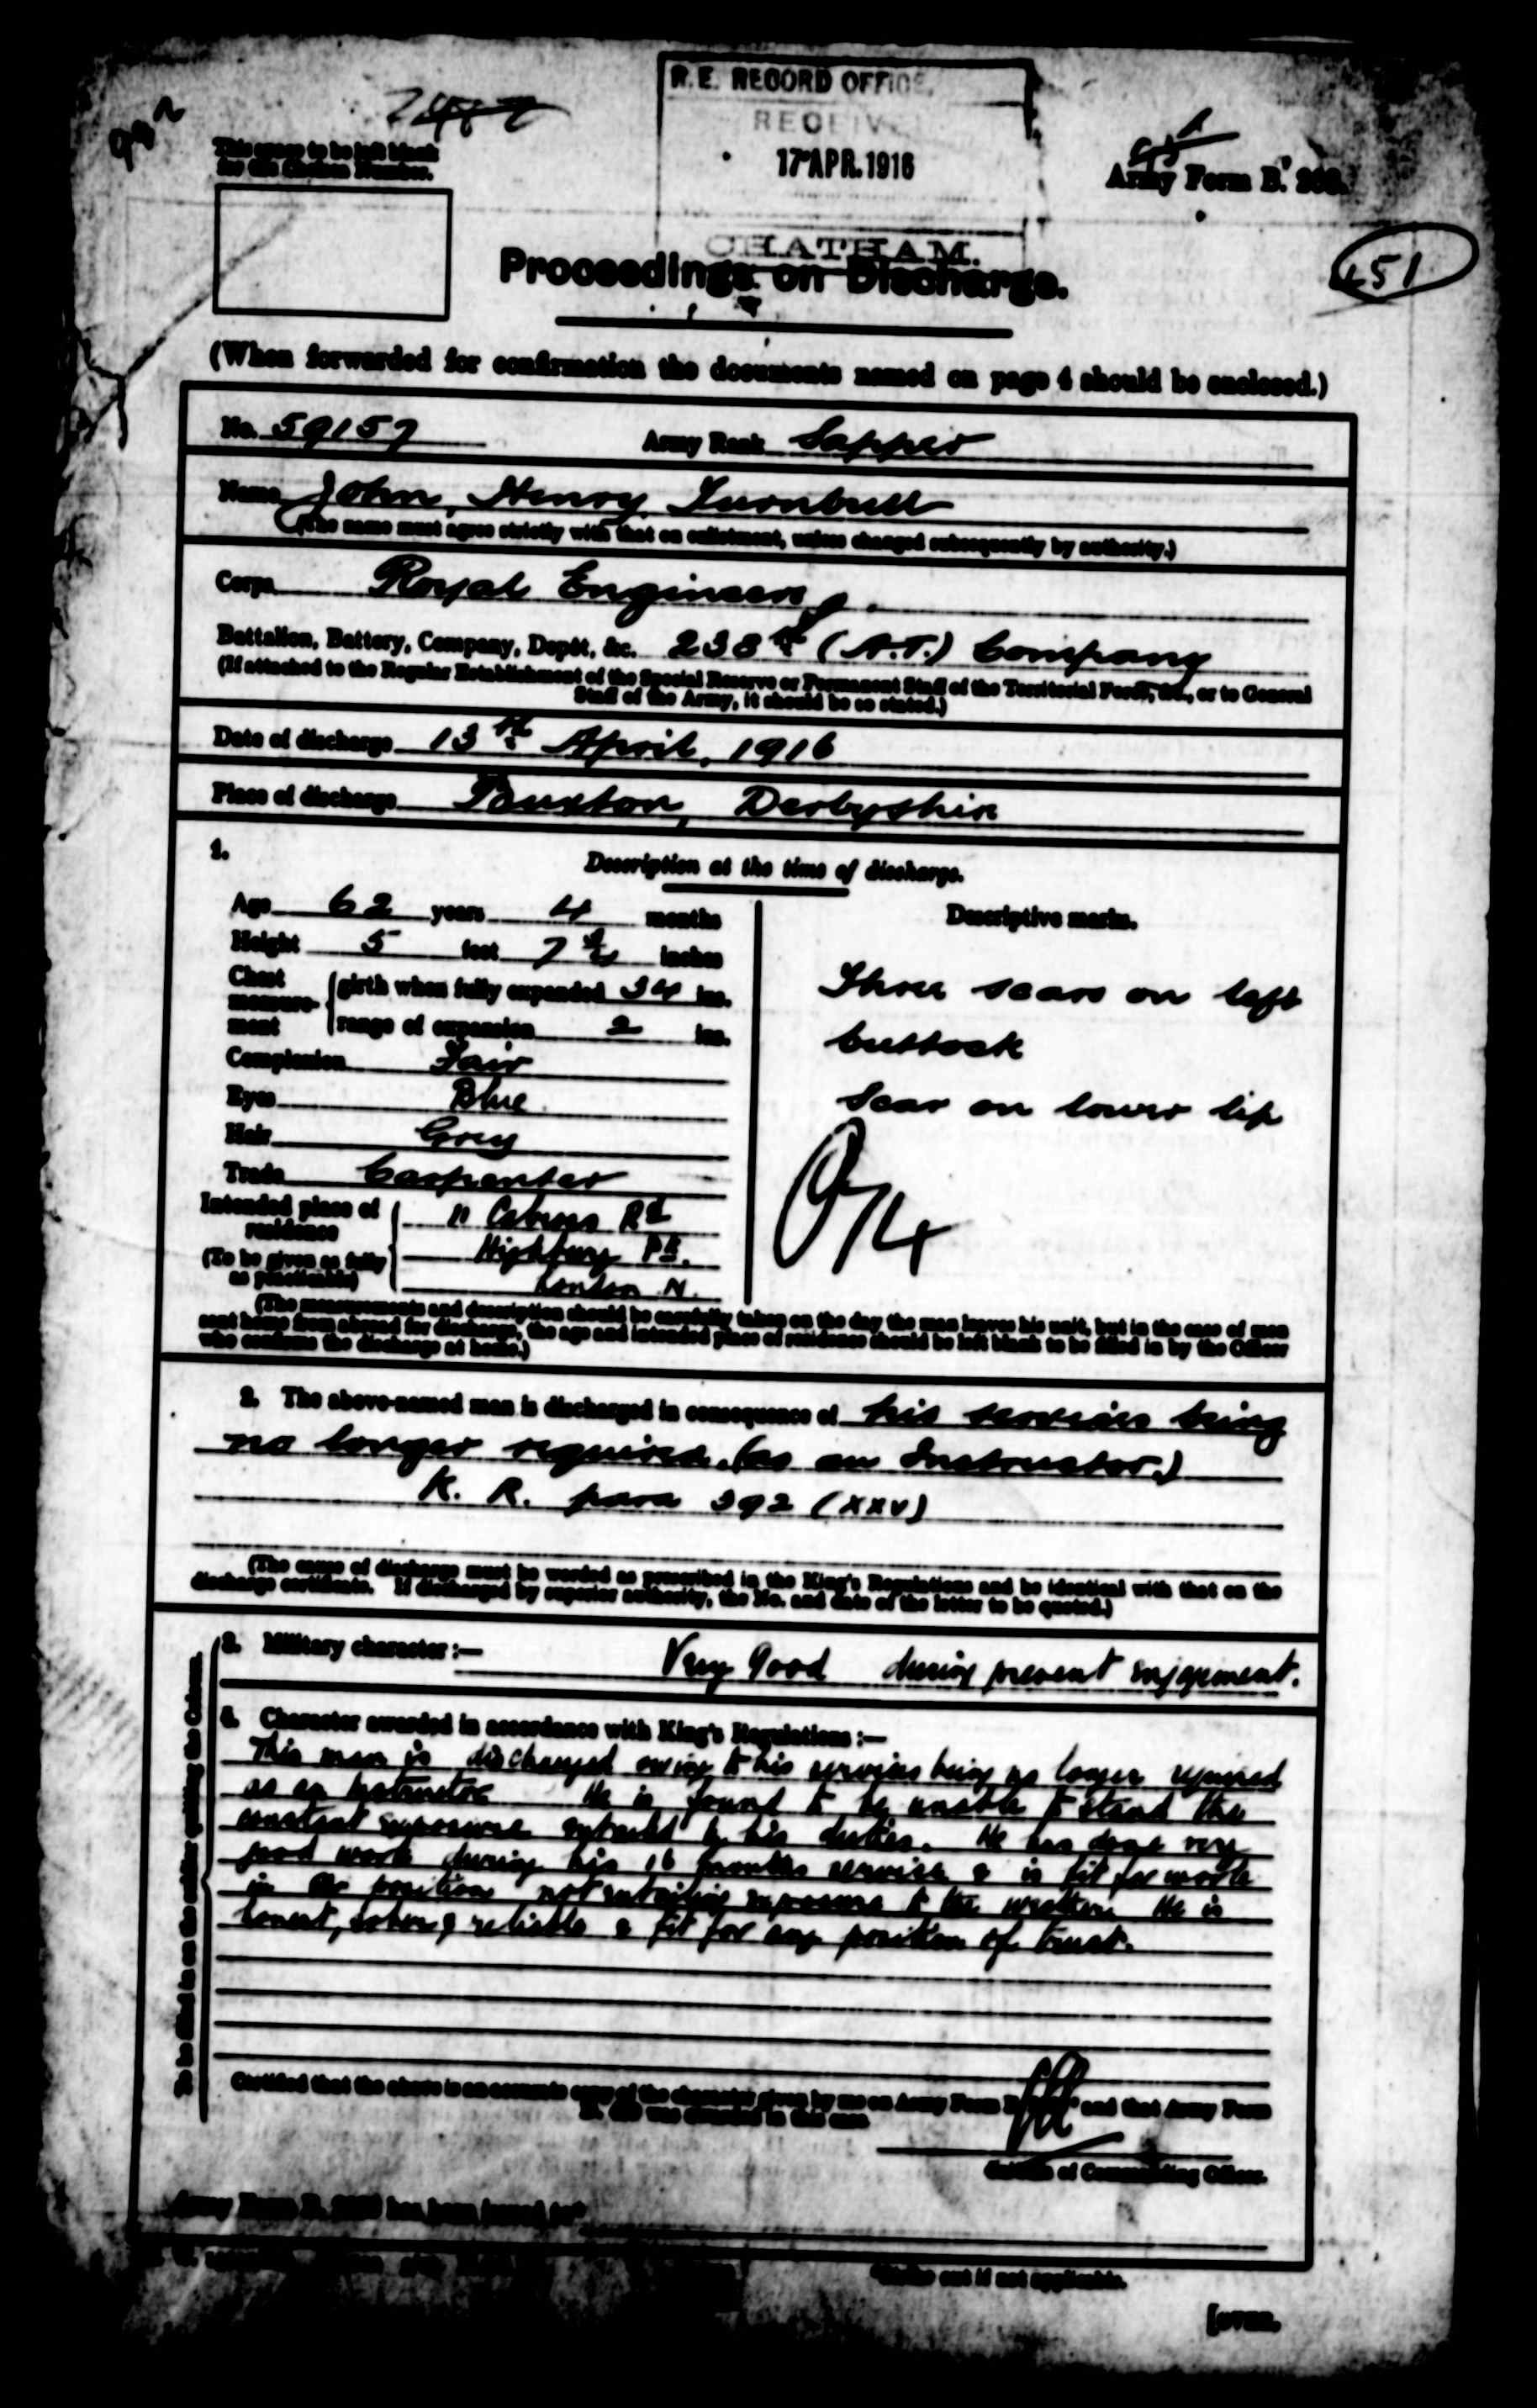 R.E. RECORD OFFICE.
RECEIVED
17 APR. 1916
CHATHAM.
This space to be left blank
for the Chelsea Number.
Army Form B.
Proceedings on Discharge.
451
(When forwarded for confirmation the documents named on page 4 should be enclosed.)
No. 59157 Army Rank Sapper
Name John, Henry Turnbull
(The name must agree strictly with that on enlistment, unless changed subsequently by authority.)
Corps Royal Engineers
Battalion, Battery, Company, Depôt, &c. 238th (A.T.) Company
(If attached to the Regular Establishment of the Special Reserve or Permanent Staff of the Territorial Force, &c., or to General
Staff of the Army, it should be so stated.)
Date of discharge 13th April, 1916
Place of discharge Buxton, Derbyshire
1. Description at the time of discharge.
Age 62 years 4 months
Height 5 feet 7 3/4 inches
Chest measurement girth when fully expanded 34 ins.
range of expansion 2 ins.
Complexion Fair
Eyes Blue
Hair Grey
Trade Carpenter
Intended place of residence
(To be given as fully as practicable)
11 Rd
Highbury Pk.
London N.
Descriptive marks.
Three scars on left
buttock
Scar on lower lip
(The measurements and description should be carefully taken on the day the man leaves his unit, but in the case of men
sent home from abroad for discharge, the age and intended place of residence should be left blank to be filled in by the Officer
who confirms the discharge at home.)
2. The above-named man is discharged in consequence of his services being
no longer required. (as an Instructor.)
K. R. para 392 (XXV)
(The cause of discharge must be worded as prescribed in the King's Regulations and be identical with that on the
discharge certificate. If discharged by superior authority, the No. and date of the letter to be quoted.)
To be filled in on the soldier quitting the Colours.
3. Military character:— Very Good during present engagement.
4. Character awarded in accordance with King's Regulations:—
This man is discharged owing to his services being no longer required
as an Instructor He is found to be unable to stand the
constant exposure entailed by his duties. He has done very
good work during his 16 months service & is fit for work
in any position not entailing exposure to the weather. He is
honest, sober, reliable & fit for any position of trust.
Certified that the above is an accurate copy of the character given by me on Army Form B. and that Army Form
B. was awarded in this case
of Commanding Officer.
Army Form B. has been issued to*
*Strike out if not applicable.
[OVER.